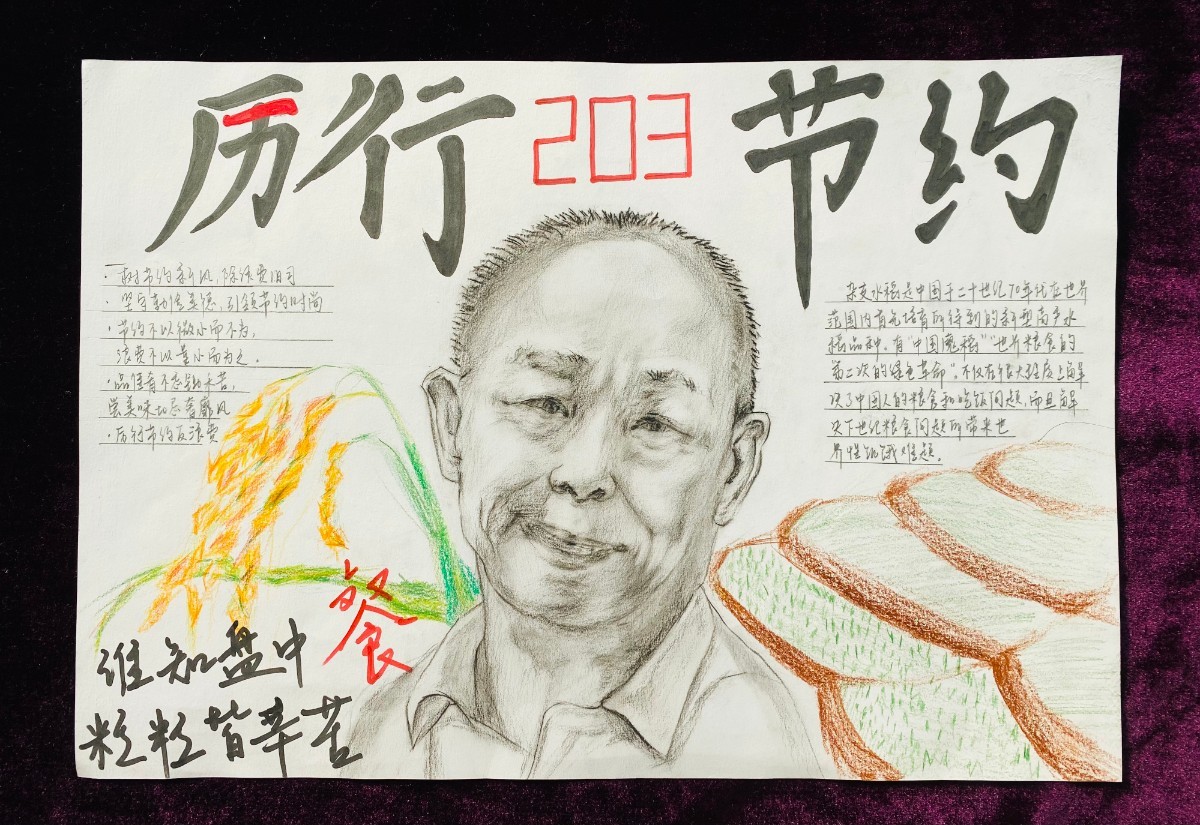 厉行 203 节约
·树节约新风,除浪费旧习
·坚守勤俭美德,引领节约时尚
·节约不以微小而不为,
浪费不以量小而为之。
·品佳肴不忘勤来苦,
尝美味切忌奢靡风
·厉行节约反浪费
杂交水稻是中国于二十世纪70年代在世界
范围内首先培育所得到的新型高产水
稻品种。有“中国魔稻”“世界粮食的
第二次的绿色革命”。不仅在很大程度上解
决了中国人的粮食和吃饭问题,而且解
决下世纪粮食问题所带来世
界性饥饿难题。
谁知盘中餐
粒粒皆辛苦